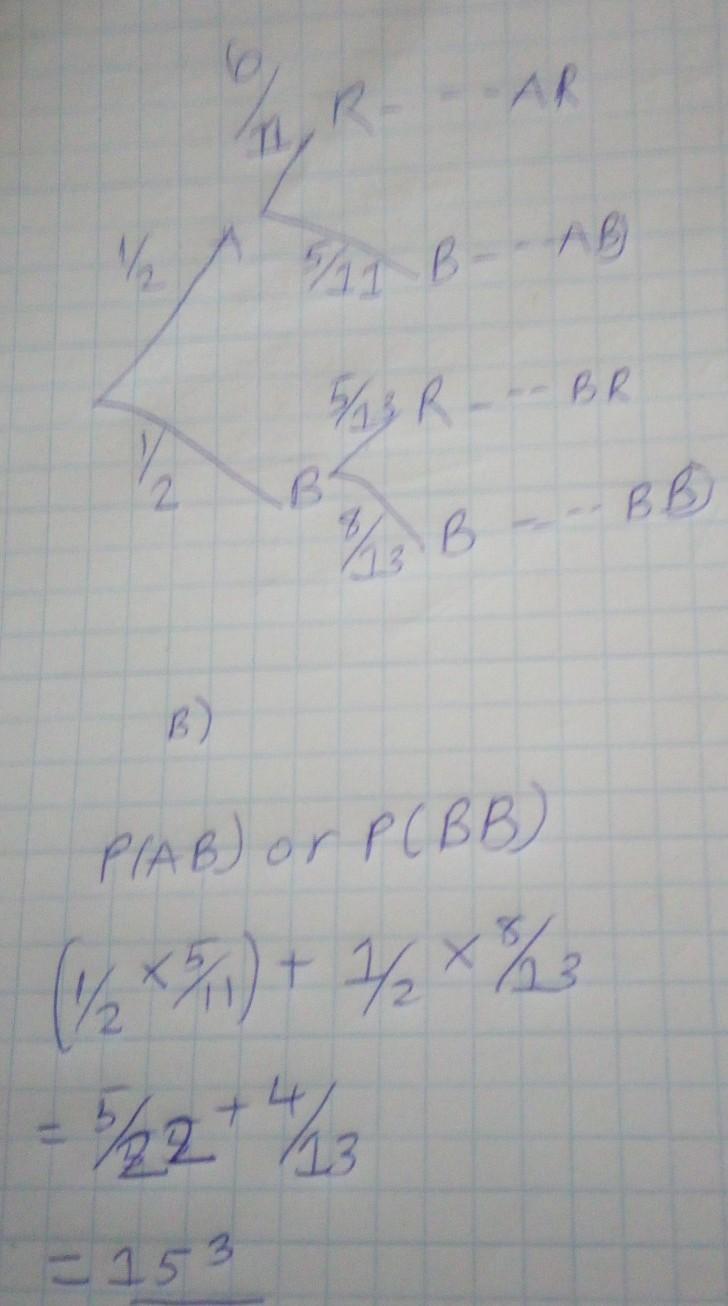 6/11 R - - - - AR
1/2 A
5/11 B - - - AB
5/13 R - - - BR
1/2 B
8/13 B - - - BB
B)
P(AB) or P(BB)
(1/2 × 5/11) + 1/2 × 8/13
= 5/22 + 4/13
= 153